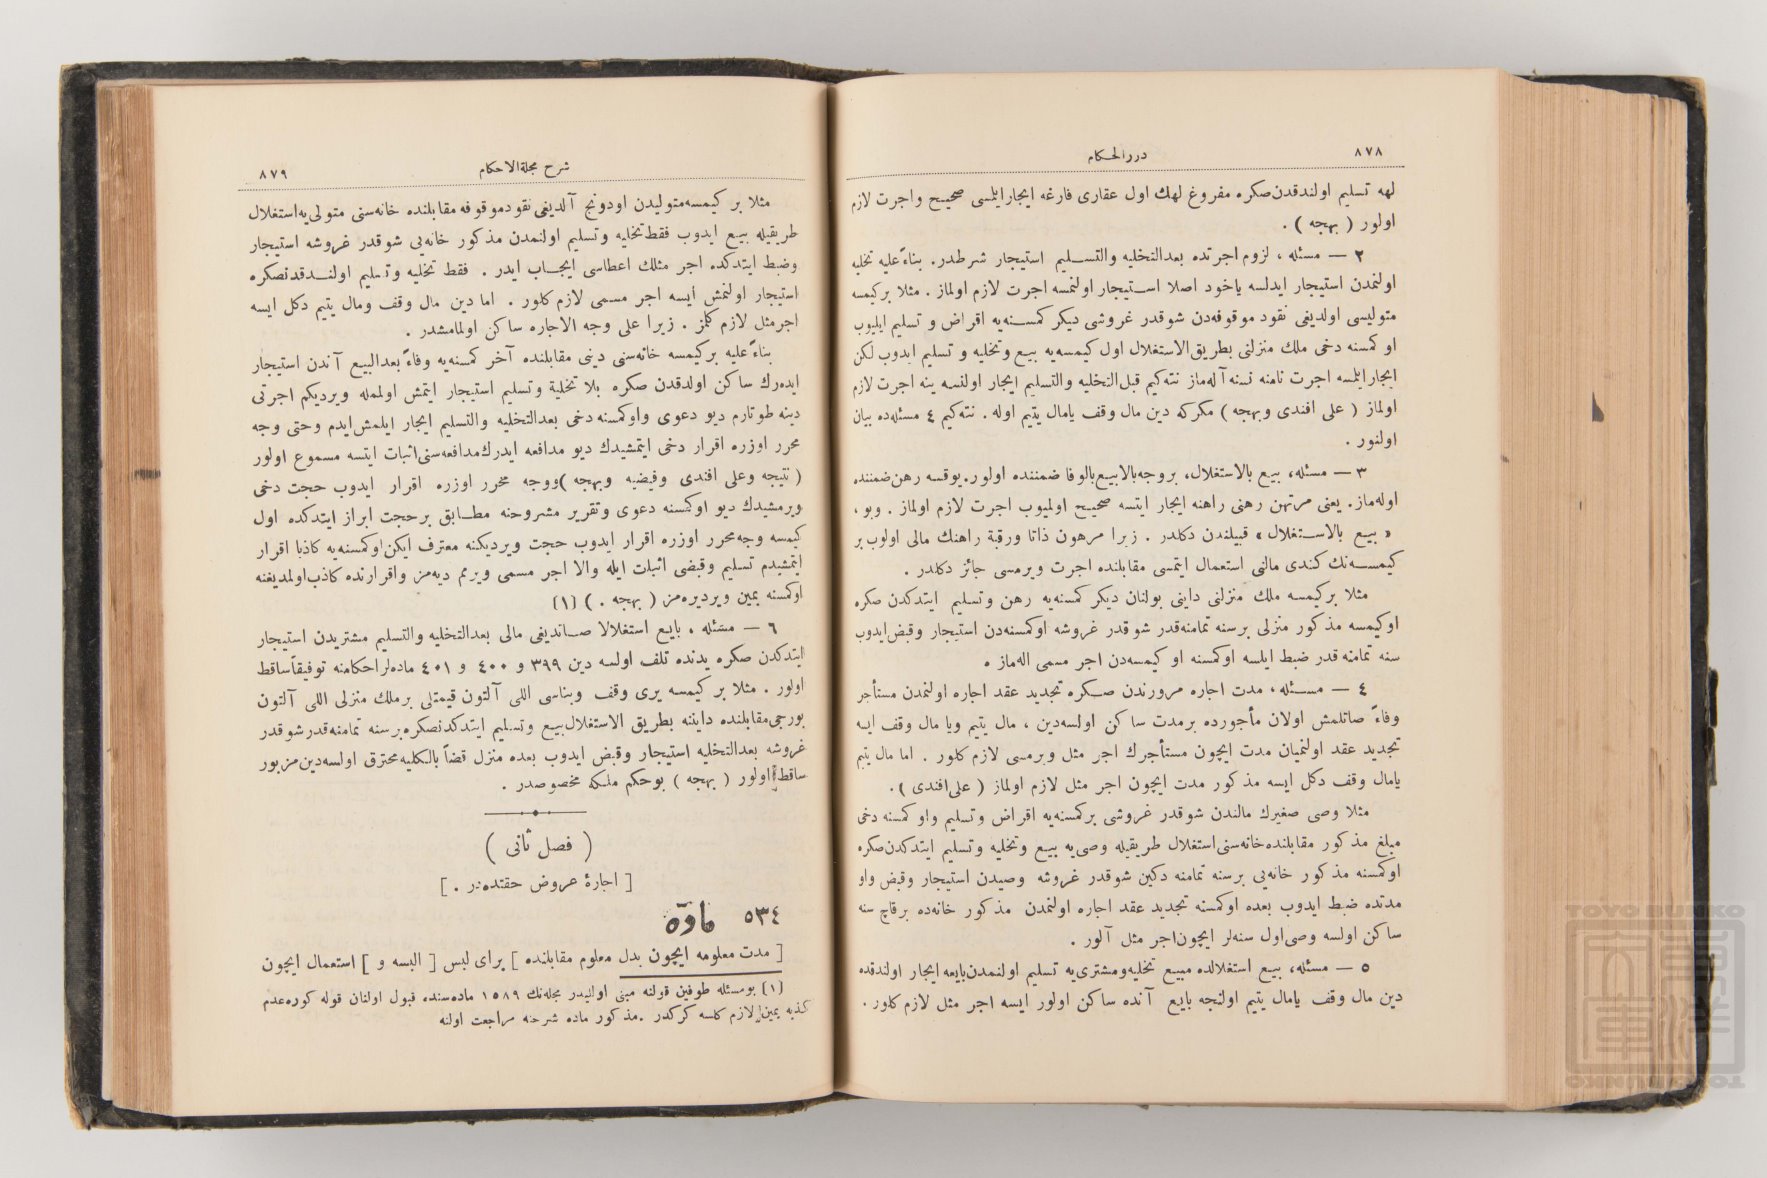 ٨٧٨
درر الحكام
لهه تسليم اولندقدن صكره مفروغ لهك اول عقارى فارغه ايجار ايلمسى صحيح واجرت لازم
اولور ( بهجه ) .
٢ — مسئله ، لزوم اجرتده بعد التخليه والتسليم استيجار شرطدر. بناءً عليه تخليه
اولنمدن استيجار ايدلسه ياخود اصلا استيجار اولنمسه اجرت لازم اولماز . مثلا بر كيمسه
متوليسى اولديغى نقود موقوفه‌دن شو قدر غروشى ديكر كمسنه‌يه اقراض و تسليم ايليوب
او كمسنه دخى ملك منزلنى بطريق الاستغلال اول كيمسه‌يه بيع وتخليه و تسليم ايدوب لكن
ايجار ايلمسه اجرت نامنه نسنه آله‌ماز نته‌كيم قبل التخليه والتسليم ايجار اولنسه ينه اجرت لازم
اولماز ( على افندى وبهجه ) مكركه دين مال وقف يامال يتيم اوله . نته‌كيم ٤ مسئله‌ده بيان
اولنور .
٣ — مسئله، بيع بالاستغلال، بر وجه بالا بيع بالوفا ضمننده اولور. يوقسه رهن ضمننده
اوله‌ماز. يعنى مرتهن رهنى راهنه ايجار ايتسه صحيح اولميوب اجرت لازم اولماز . وبو ،
« بيع بالاستغلال » قبيلندن دكلدر . زيرا مرهون ذاتا ورقبة راهنك مالى اولوب بر
كيمسه‌نك كندى مالنى استعمال ايتمسى مقابلنده اجرت ويرمسى جائز دكلدر .
مثلا بر كيمسه ملك منزلنى داينى بولنان ديكر كمسنه‌يه رهن وتسليم ايتدكدن صكره
اوكيمسه مذكور منزلى بر سنه تمامنه‌قدر شو قدر غروشه اوكمسنه‌دن استيجار وقبض ايدوب
سنه تمامنه قدر ضبط ايلسه اوكمسنه او كيمسه‌دن اجر مسمى اله‌ماز .
٤ — مسئله ، مدت اجاره مرورندن صكره تجديد عقد اجاره اولنمدن مستأجر
وفاءً صاتلمش اولان مأجورده بر مدت ساكن اولسه دين ، مال يتيم ويا مال وقف ايسه
تجديد عقد اولنميان مدت ايچون مستأجرك اجر مثل ويرمسى لازم كلور . اما مال يتيم
يامال وقف دكل ايسه مذكور مدت ايچون اجر مثل لازم اولماز ( على افندى ) .
مثلا وصى صغيرك مالندن شوقدر غروشى بر كمسنه‌يه اقراض وتسليم واو كمسنه دخى
مبلغ مذكور مقابلنده خانه‌سنى استغلال طريقيله وصى‌يه بيع وتخليه وتسليم ايتدكدن صكره
اوكمسنه مذكور خانه‌يى بر سنه تمامنه دكين شوقدر غروشه وصيدن استيجار وقبض واو
مدتده ضبط ايدوب بعده اوكمسنه تجديد عقد اجاره اولنمدن مذكور خانه‌ده برقاچ سنه
ساكن اولسه وصى اول سنه‌لر ايچون اجر مثل آلور .
٥ — مسئله، بيع استغلالده مبيع تخليه ومشترى‌يه تسليم اولنمدن بايعه ايجار اولندقده
دين مال وقف يامال يتيم اولنجه بايع آنده ساكن اولور ايسه اجر مثل لازم كلور .
شرح مجلة الاحكام
٨٧٩
مثلا بر كيمسه متوليدن اودونج آلديغى نقود موقوفه مقابلنده خانه‌سنى متولى‌يه استغلال
طريقيله بيع ايدوب فقط تخليه وتسليم اولنمدن مذكور خانه‌يى شوقدر غروشه استيجار
وضبط ايتدكده اجر مثلك اعطاسى ايجاب ايدر . فقط تخليه وتسليم اولندقدنصكره
استيجار اولنمش ايسه اجر مسمى لازم كلور . اما دين مال وقف ومال يتيم دكل ايسه
اجر مثل لازم كلمز . زيرا على وجه الاجاره ساكن اولمامشدر .
بناءً عليه بر كيمسه خانه‌سنى دينى مقابلنده آخر كمسنه‌يه وفاءً بعد البيع آندن استيجار
ايده‌رك ساكن اولدقدن صكره بلا تخلية وتسليم استيجار ايتمش اولمله ويرديكم اجرتى
دينه طوتارم ديو دعوى واوكمسنه دخى بعد التخليه والتسليم ايجار ايلمش ايدم وحتى وجه
محرر اوزره اقرار دخى ايتمشيدك ديو مدافعه ايدرك مدافعه‌سنى اثبات ايتسه مسموع اولور
( نتيجه وعلى افندى وفيضيه وبهجه ) ووجه محرر اوزره اقرار ايدوب حجت دخى
ويرمشيدك ديو اوكمسنه دعوى وتقرير مشروحنه مطابق بر حجت ابراز ايتدكده اول
كيمسه وجه محرر اوزره اقرار ايدوب حجت ويرديكنه معترف ايكن اوكمسنه‌يه كاذبا اقرار
ايتمشيدم تسليم وقبضى اثبات ايله والا اجر مسمى ويرمم ديه‌مز واقرارنده كاذب اولمديغنه
اوكمسنه يمين ويرديره‌مز ( بهجه . ) (١)
٦ — مسئله ، بايع استغلالا صانديغى مالى بعد التخليه والتسليم مشتريدن استيجار
ايتدكدن صكره يدنده تلف اولسه دين ٣٩٩ و ٤٠٠ و ٤٠١ ماده‌لر احكامنه توفيقاً ساقط
اولور . مثلا بر كيمسه يرى وقف وبناسى اللى آلتون قيمتلى بر ملك منزلى اللى آلتون
بورجى مقابلنده داينه بطريق الاستغلال بيع وتسليم ايتدكدنصكره بر سنه تمامنه قدر شوقدر
غروشه بعد التخليه استيجار وقبض ايدوب بعده منزل قضاً بالكليه محترق اولسه دين مزبور
ساقط اولور ( بهجه ) بو حكم ملكه مخصوصدر .
( فصل ثانى )
[ اجارۀ عروض حقنده‌در . ]
٥٣٤ ماده
[ مدت معلومه ايچون بدل معلوم مقابلنده ] براى لبس [ البسه و ] استعمال ايچون
(١) بو مسئله طوفين قولنه مبنى اوليدر مجله‌نك ١٥٨٩ ماده‌سنده قبول اولنان قوله كوره عدم
كذبه يمين لازم كلسه كركدر . مذكور ماده شرحنه مراجعت اولنه
TOYO BUNKO